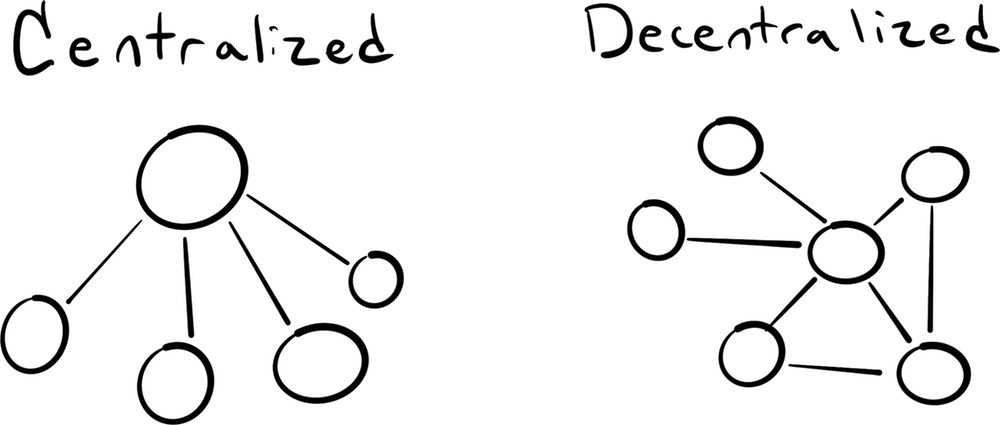 Centralized
Decentralized